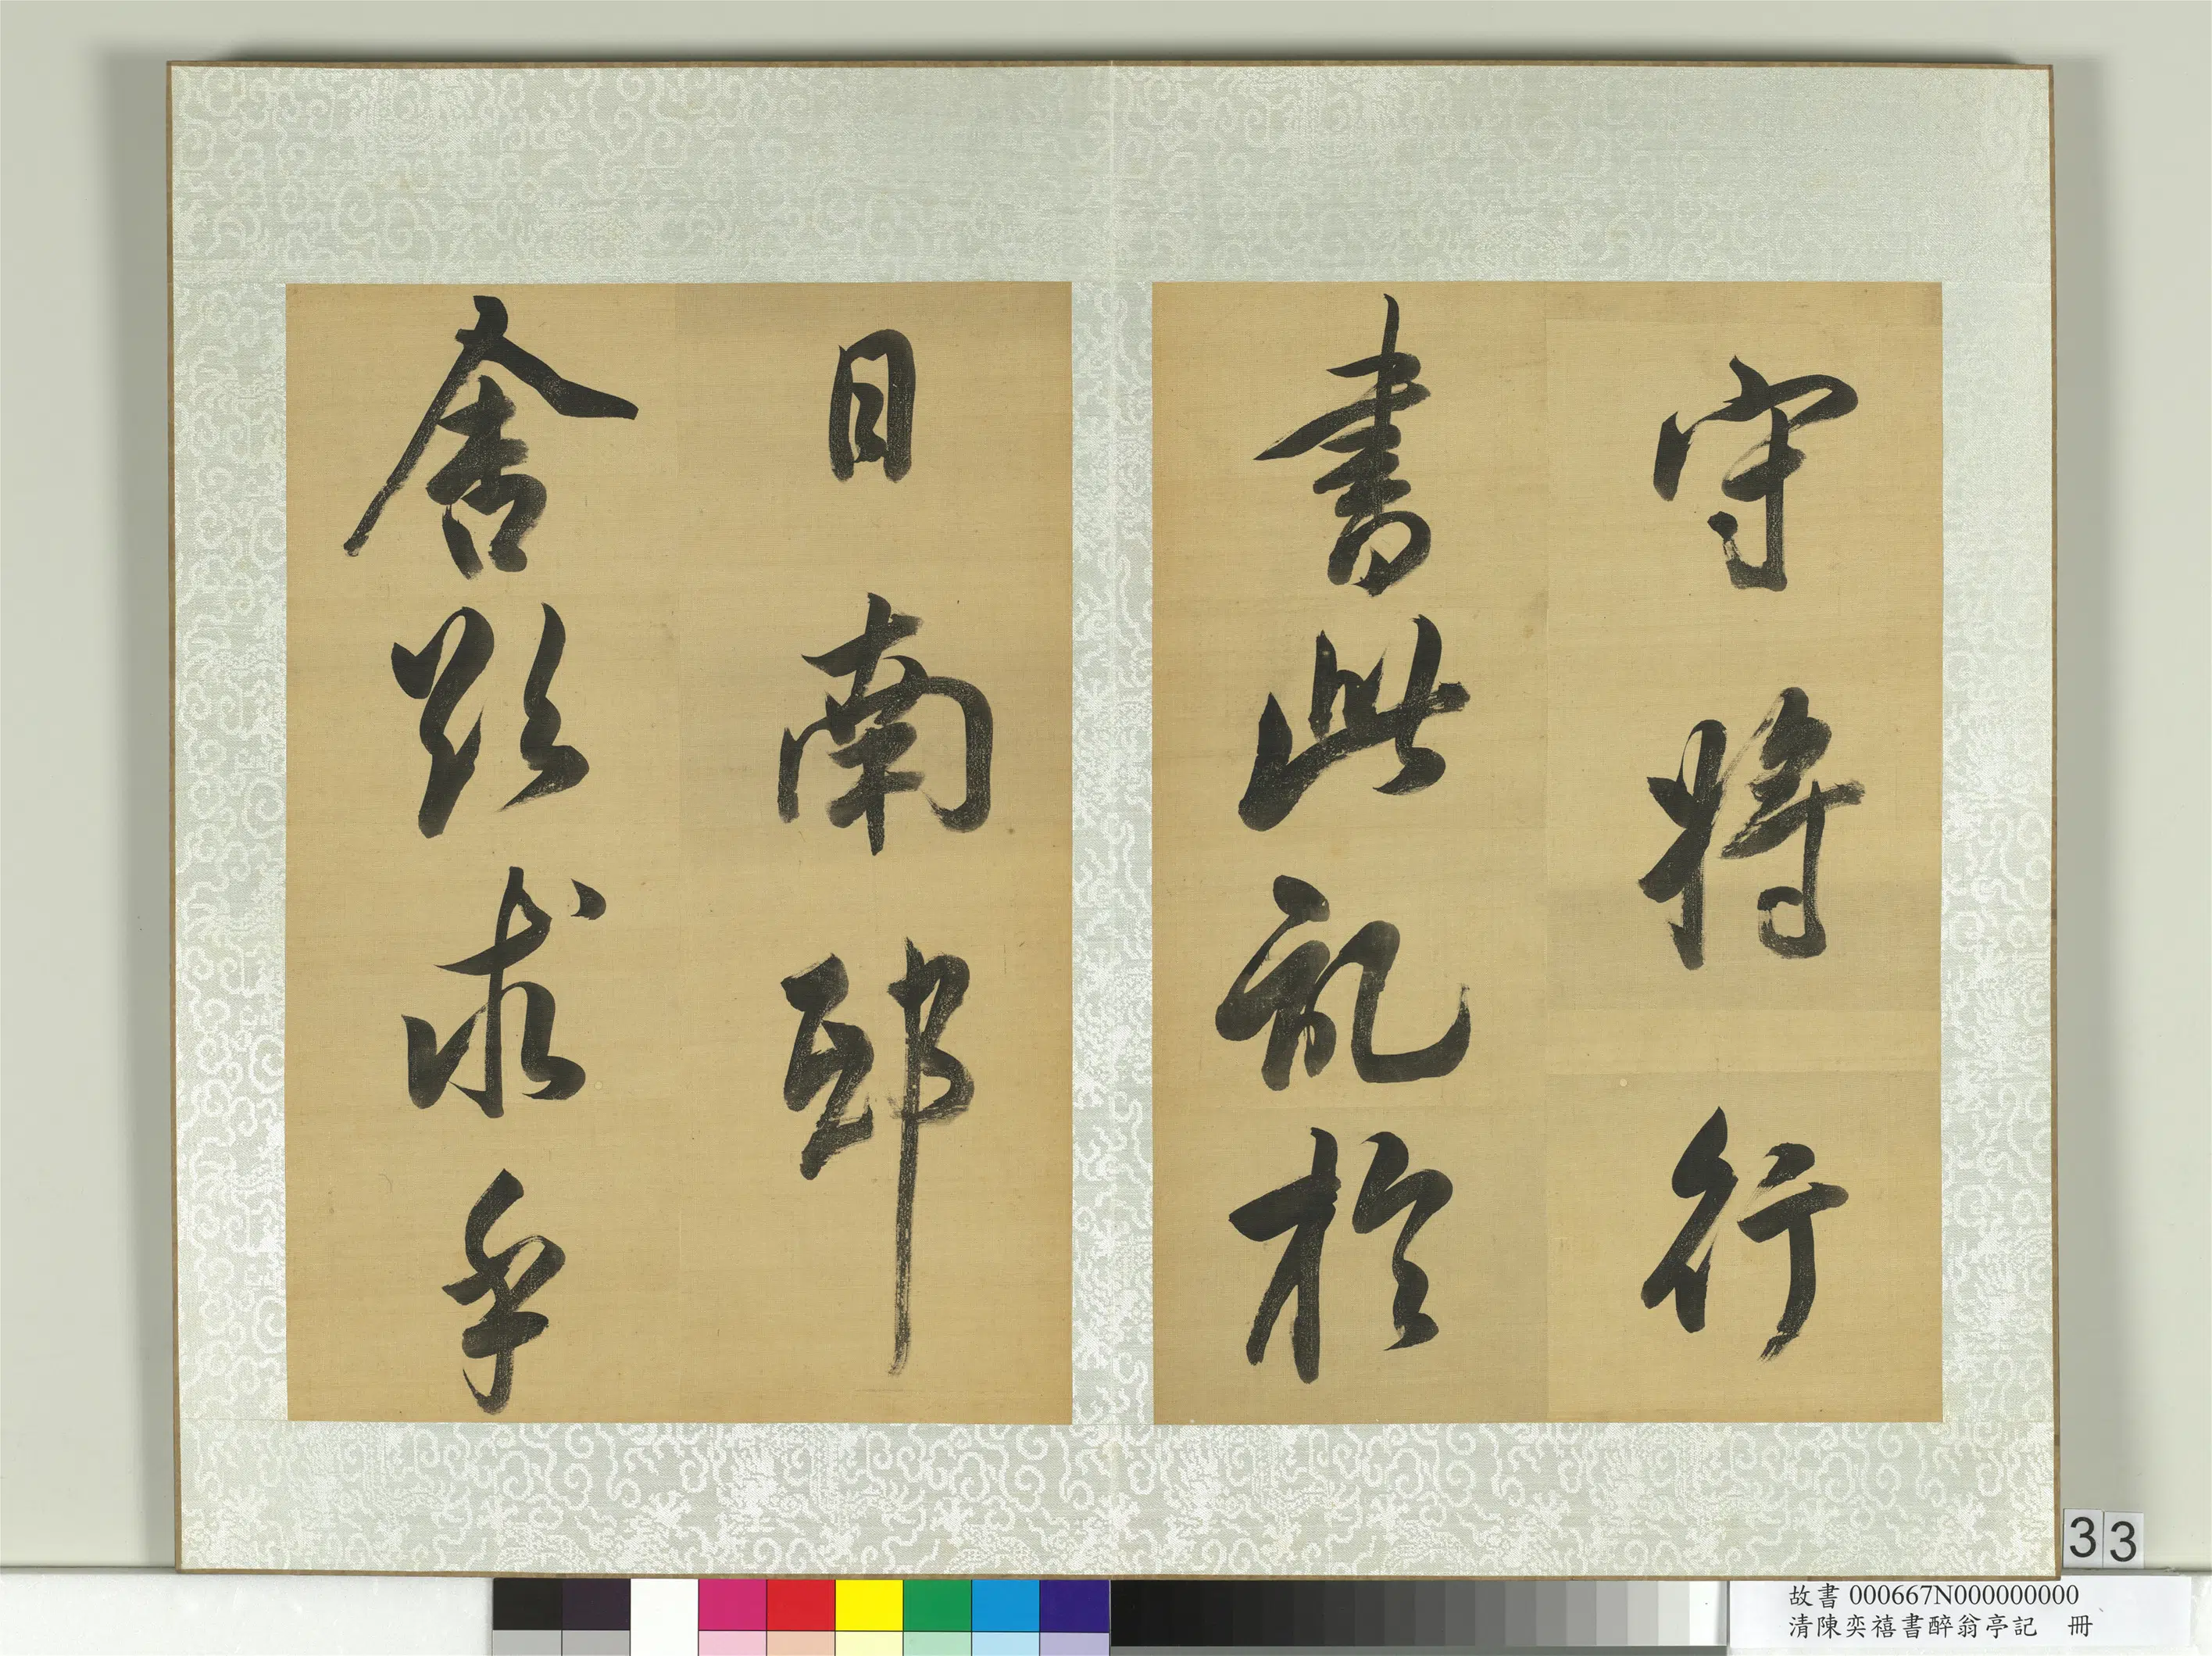 守將行
書此記於
日南邸
舍求乎
33
故書 000667N000000000
清陳奕禧書醉翁亭記 冊